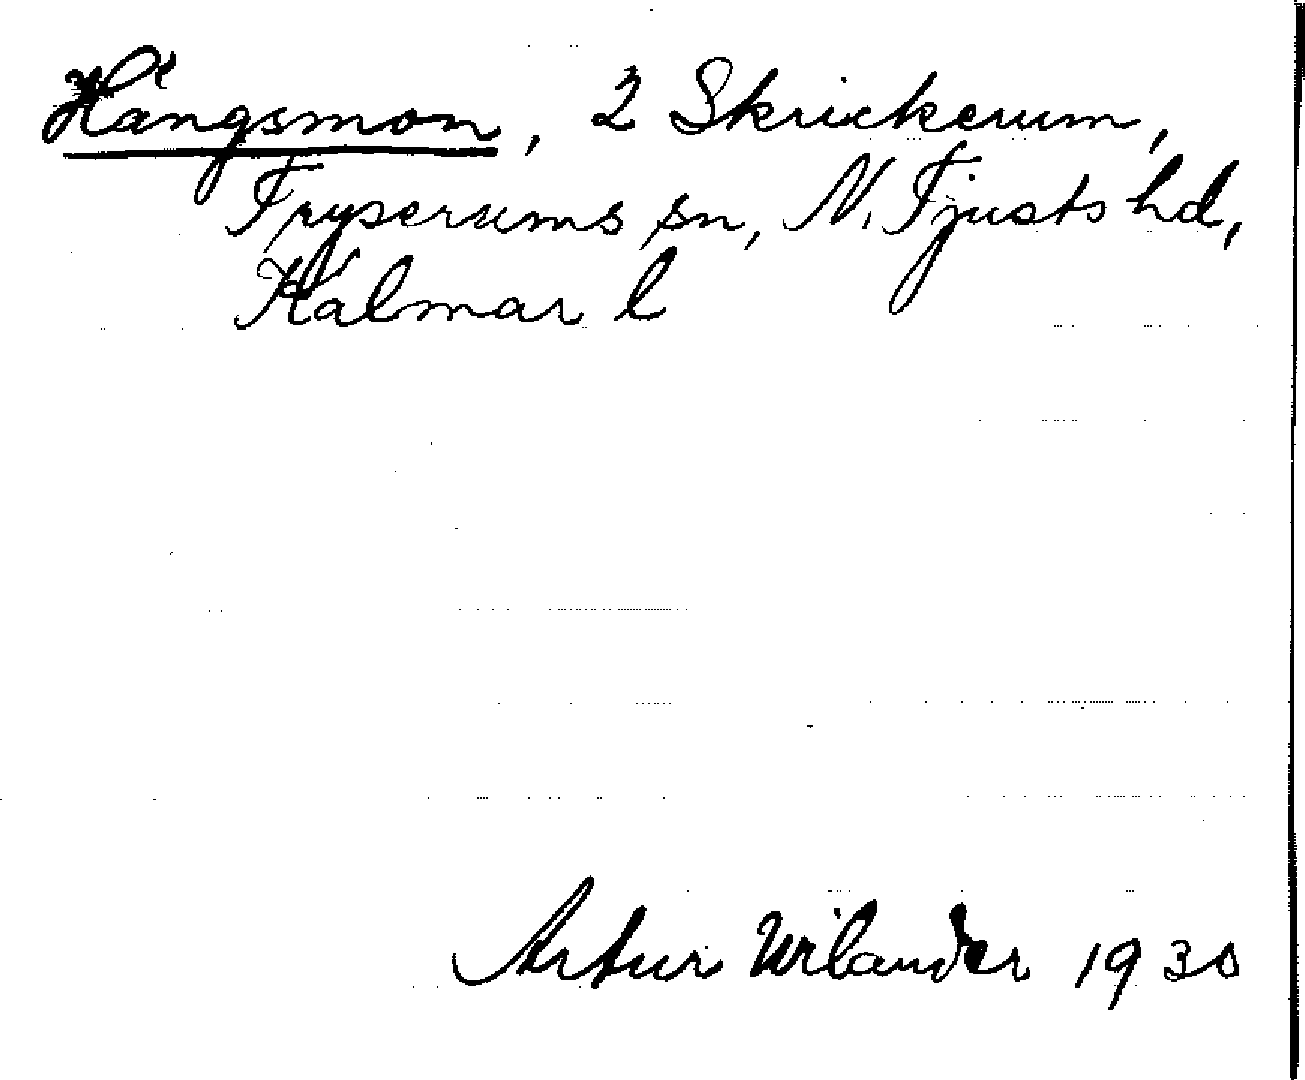 Hangsmon, 2 Skrickerum,
Tryserums sn, N. Tjusts hd,
Kalmar l
Artur Wilander 1930